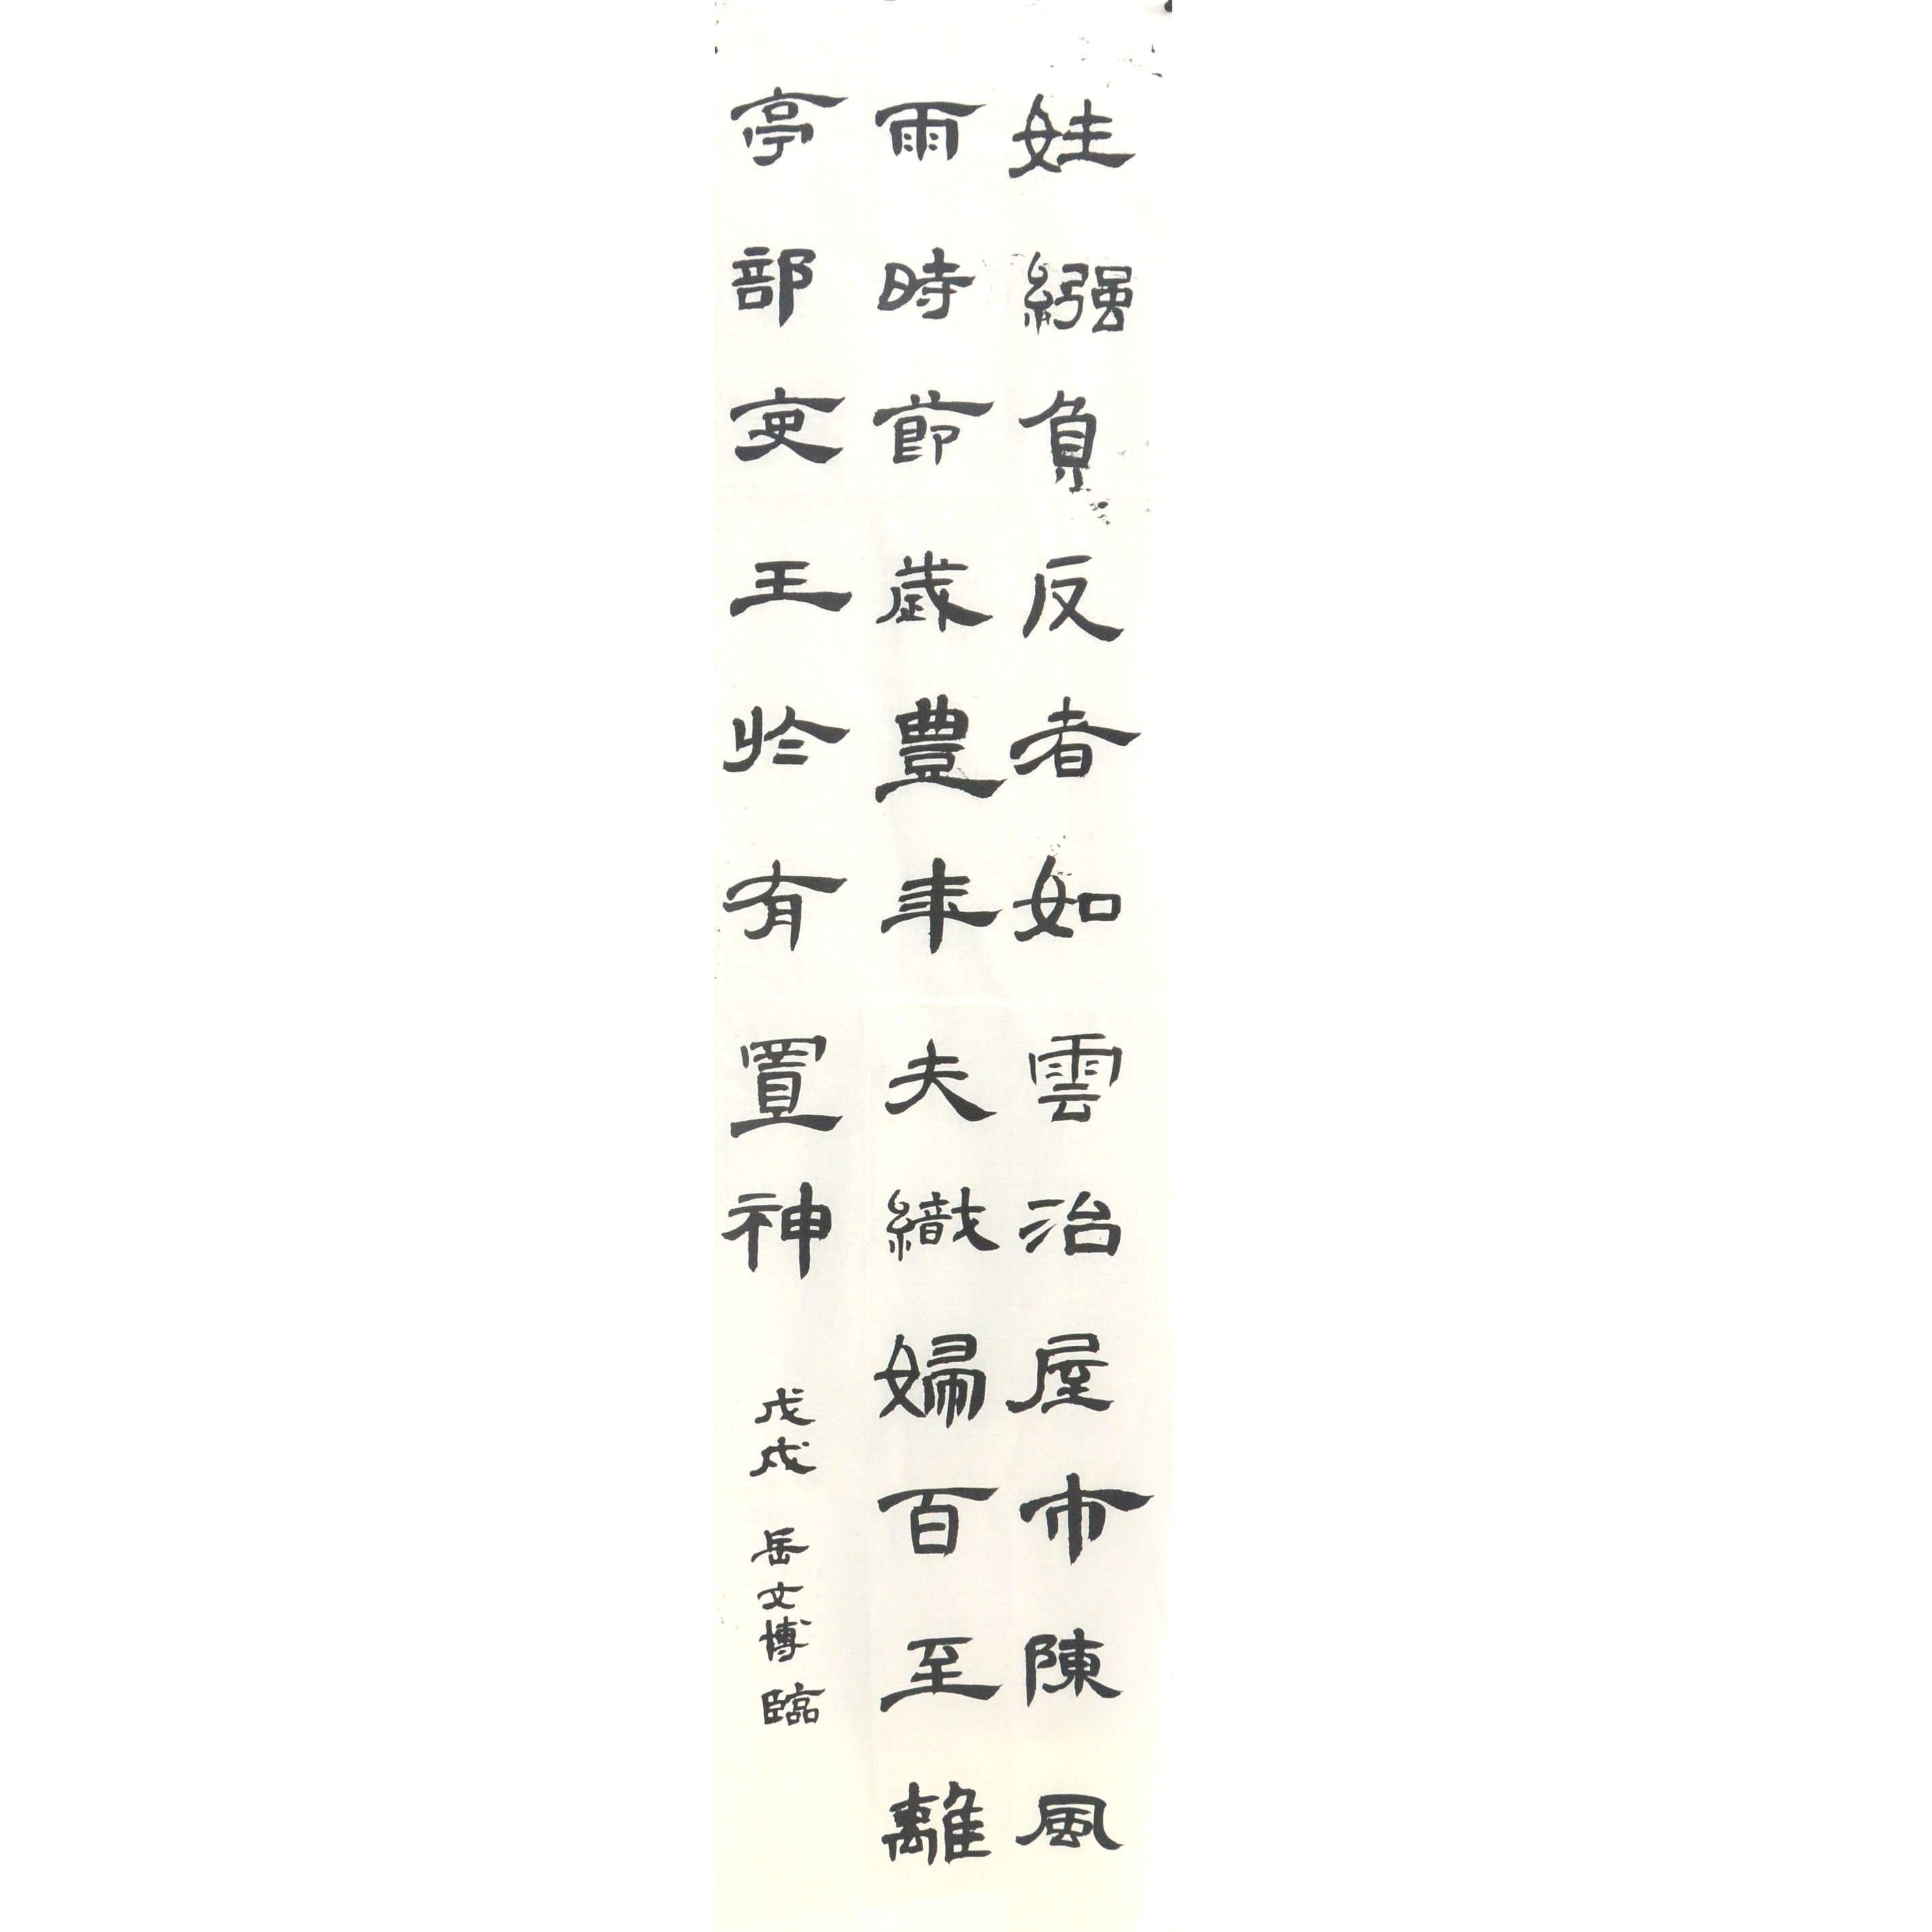 姓繦負反者如雲治屋市陳風
雨時節歲豊年夫織婦百至離
亭部吏王於有置神
戊戌 岳文博臨